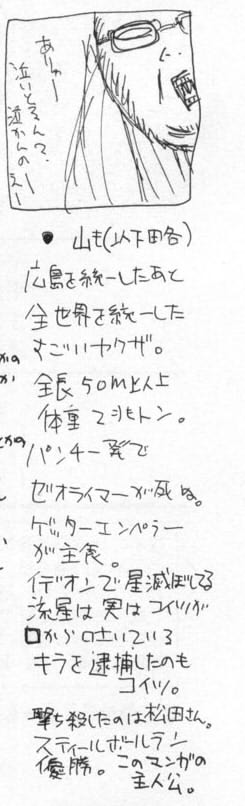 ありゃー
泣いとるんて、
泣かんのぇー
● 山も(以下田各)
広島を統一したあと
全世界を統一した
すごいヤクザ。
全長50m以上
体重2兆トン。
パンチ一発で
ゼオライマーが死ぬ。
ゲッターエンペラー
が主食。
イデオンで星滅ぼしてる
流星は実はコイツが
口から吐いている
キラを逮捕したのも
コイツ。
撃ち殺したのは松田さん。
スティールボールラン
優勝。このマンガの
主人公。